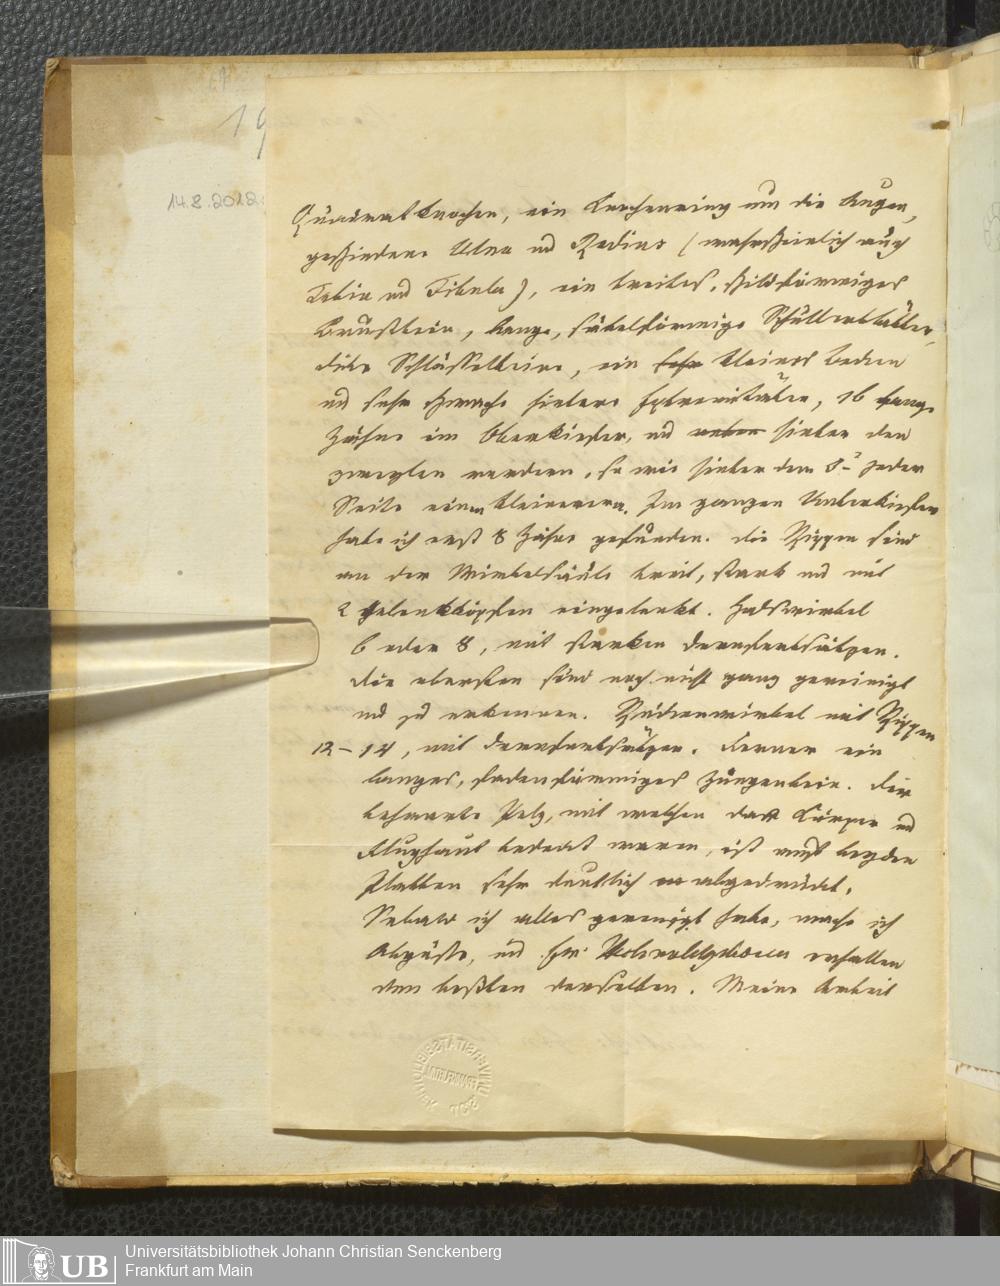 19
14.8.2012
Quadratknochen, ein Knochenring um die Augen,
geschiedene Ulna und Radius (wahrscheinlich auch
Tibia und Fibula), ein breites, schildförmiges
Brustbein, lange, säbelförmige Schulterblätter,
dicke Schlüsselbeine, ein sehr kleines Becken
und sehr schwache hintere Extremitäten, 16 lange
Zähne im Oberkiefer, und hinter den
zweyten vordern, so wie hinter dem 8t jeder
Seite einen kleineren. Im ganzen Unterkiefer
habe ich erst 8 Zähne gefunden. Die Rippen sind
an der Wirbelsäule breit, stark und mit
2 Gelenkköpfen eingelenkt. Halswirbel
6 oder 8, mit starken Dornfortsätzen.
Die obersten sind noch nicht ganz gereinigt
und zu erkennen. Rückenwirbel mit Rippen
12–14, mit Dornfortsätzen. Ferner ein
langes, fadenförmiges Zungenbein. Der
behaarte Pelz, mit welchem der Körper und
Flughaut bedeckt waren, ist auf beyden
Platten sehr deutlich abgedrückt.
Sobald ich alles gereinigt habe, mache ich
Abgüsse, und Ew. Wohlgeboren erhalten
den besten derselben. Meine Arbeit
UB
Universitätsbibliothek Johann Christian Senckenberg
Frankfurt am Main